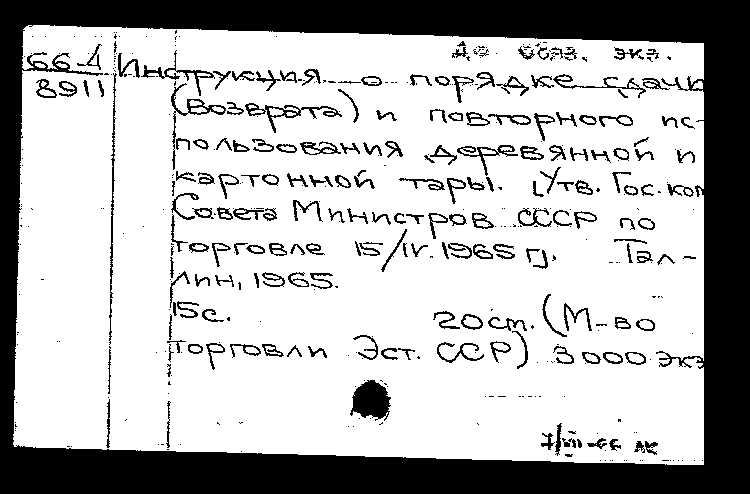 До обяз. экз.
66-Д Инструкция о порядке сдачи
8911 (возврата) и повторного ис-
пользования деревянной и
картонной тары. [Утв. Гос. ком
Совета Министров СССР по
торговле 15/IV.1965 г]. Тал-
лин, 1965.
15 с. 20 см. (М-во
торговли Эст. ССР) 3000 экз
7/VII-66